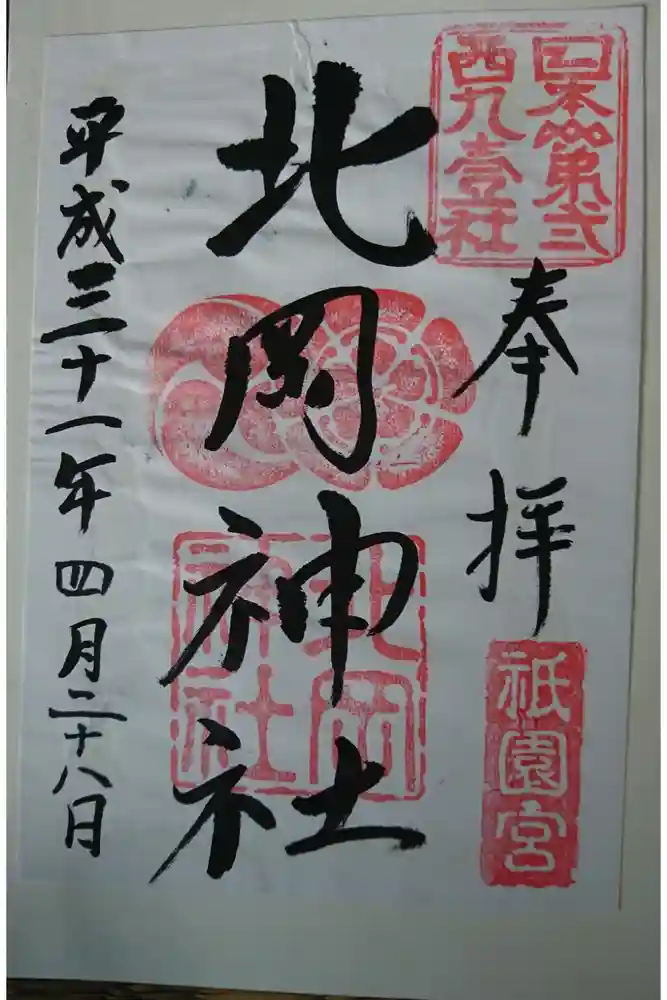 日本第弍
西九壹社
奉拝
祇園宮
北岡神社
北岡
神社
平成三十一年四月二十八日